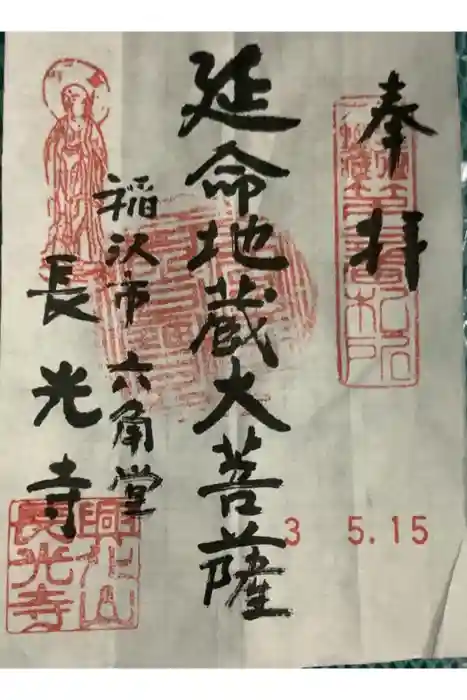 奉拝
延命地蔵大菩薩
稲沢市 六角堂
長光寺
3 5.15
興化山
長光寺